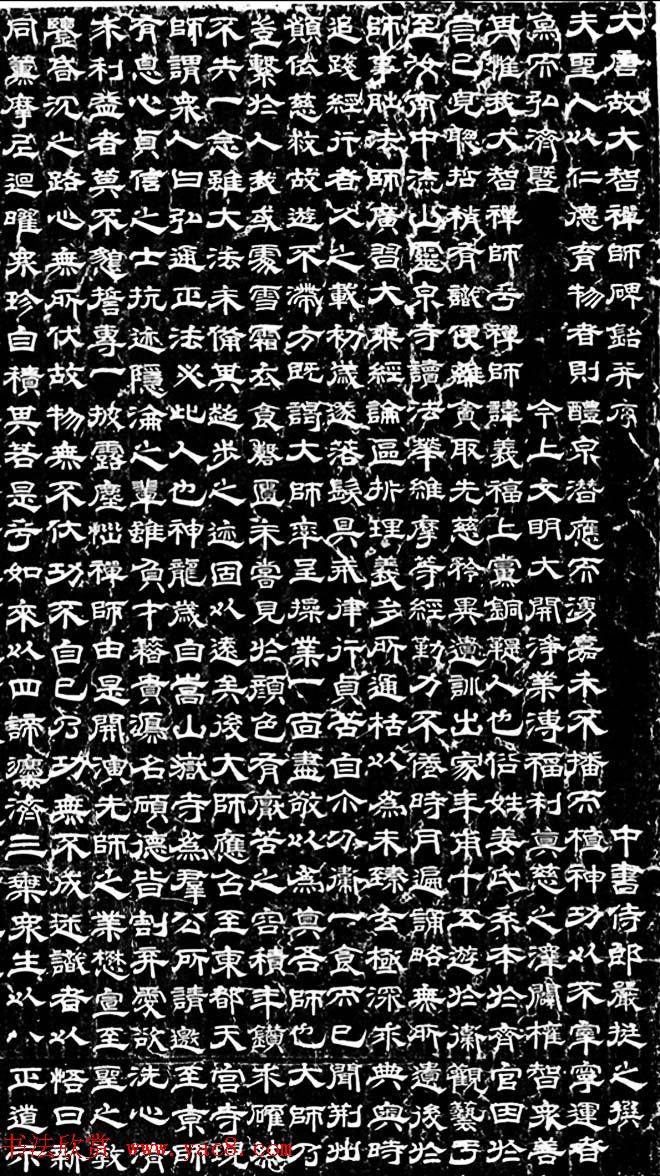 大唐故大智禪師碑銘并序 中書侍郎嚴挺之撰
夫聖人以仁德育物者則醴泉潛應而湧嘉禾不播而植神功以不宰寧運者
為而弘濟暨 今上文明大開淨業溥福利真慈之澤闡權智眾善
畢惟我大智禪師乎禪師諱義福上黨銅鞮人也俗姓姜氏系本於齊官因於
言已見聰哲稍有識便離貪取先慈矜異遺訓出家年甫十五遊於衛觀藝于
至汝南中流山靈泉寺讀法華維摩等經勤力不倦時月遍誦略無所遺後於
師事朏法師廣習大乘經論區折理義多所通括以為未臻玄極深求典奧時
追踐經行者久之載初歲遂落髮具戒律行貞苦自分衛一食而已聞荊州
願依慈救故遊不滯方既謁大師率呈操業一面盡敬以為真吾師也大師乃
豈繫於人我或處雪霜衣食罄匱未嘗見於顏色有厭苦之容積年鑽求確然
不失一念雖大法未備其超步之迹固以遠矣後大師應召至東都天宮寺現
師謂眾人曰弘通正法必此人也神龍歲自嵩山嶽寺為群公所請邀至京師
有息心貞信之士抗迹隱淪之輩雖負才藉貴鴻名碩德皆割棄愛欲洗心齊
未利益者莫不專一披露塵惱禪師由是開演先師之業懋宣至聖之教
鑒昏沉之路心無所伏故物無不伏功不自己乃功無不成迷識者以悟日新
同薰摩尼迴曜眾珍自積其若是乎如來以四諦法濟三乘眾生以八正道示
书法欣赏 www.yac8.com